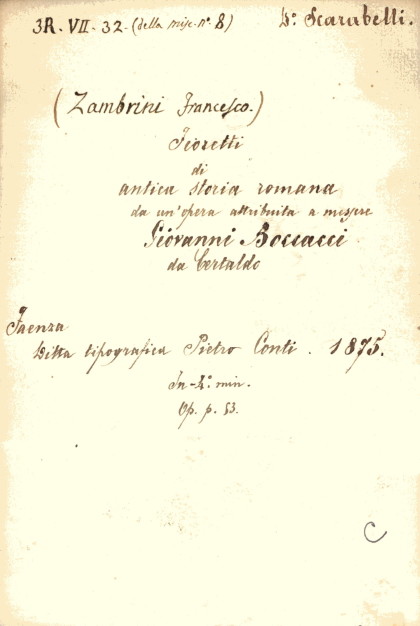 3R. VII. 32. (della misc. n.° 8) L.° Scarabelli.
(Zambrini Francesco.)
Fioretti
di
antica storia romana
da un'opera attribuita a messere
Giovanni Boccacci
da Certaldo
Faenza
Ditta tipografica Pietro Conti. 1875.
In-4.° min.
Op. p. 53.
C